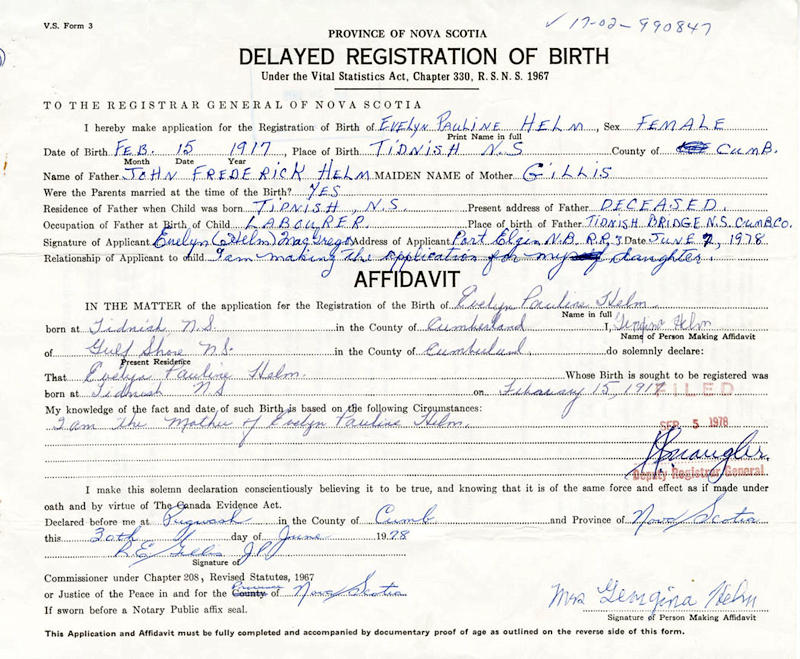 V.S. Form 3
✓ 17-02-990847
PROVINCE OF NOVA SCOTIA
DELAYED REGISTRATION OF BIRTH
Under the Vital Statistics Act, Chapter 330, R.S.N.S. 1967
TO THE REGISTRAR GENERAL OF NOVA SCOTIA
I hereby make application for the Registration of Birth of EVELYN PAULINE HELM, Sex FEMALE
Print Name in full
Date of Birth FEB. 15 1917, Place of Birth TIDNISH N.S County of CUMB.
Month Date Year
Name of Father JOHN FREDERICK HELM MAIDEN NAME of Mother GILLIS
Were the Parents married at the time of the Birth? YES
Residence of Father when Child was born TIDNISH, N.S. Present address of Father DECEASED.
Occupation of Father at Birth of Child LABOURER. Place of birth of Father TIDNISH BRIDGE N.S. CUMB CO.
Signature of Applicant Evelyn (Helm) MacGregor Address of Applicant Port Elgin N.B. R.R. 1 Date JUNE 7, 1978
Relationship of Applicant to child I am making the application for my daughter.
AFFIDAVIT
IN THE MATTER of the application for the Registration of the Birth of Evelyn Pauline Helm
Name in full
born at Tidnish N.S. in the County of Cumberland I, Georgina Helm
Name of Person Making Affidavit
of Gulf Shore N.S. in the County of Cumberland, do solemnly declare:
Present Residence
That Evelyn Pauline Helm. Whose Birth is sought to be registered was
born at Tidnish NS on February 15, 1917
FILED
My knowledge of the fact and date of such Birth is based on the following Circumstances:
I am the Mother of Evelyn Pauline Helm.
SEP 5 1978
Deputy Registrar General
I make this solemn declaration conscientiously believing it to be true, and knowing that it is of the same force and effect as if made under
oath and by virtue of The Canada Evidence Act.
Declared before me at Pugwash in the County of Cumb and Province of Nova Scotia
this 30th day of June 1978
R E Gillis J.P.
Signature of
Commissioner under Chapter 208, Revised Statutes, 1967
or Justice of the Peace in and for the County Province of Nova Scotia
If sworn before a Notary Public affix seal.
Mrs Georgina Helm
Signature of Person Making Affidavit
This Application and Affidavit must be fully completed and accompanied by documentary proof of age as outlined on the reverse side of this form.